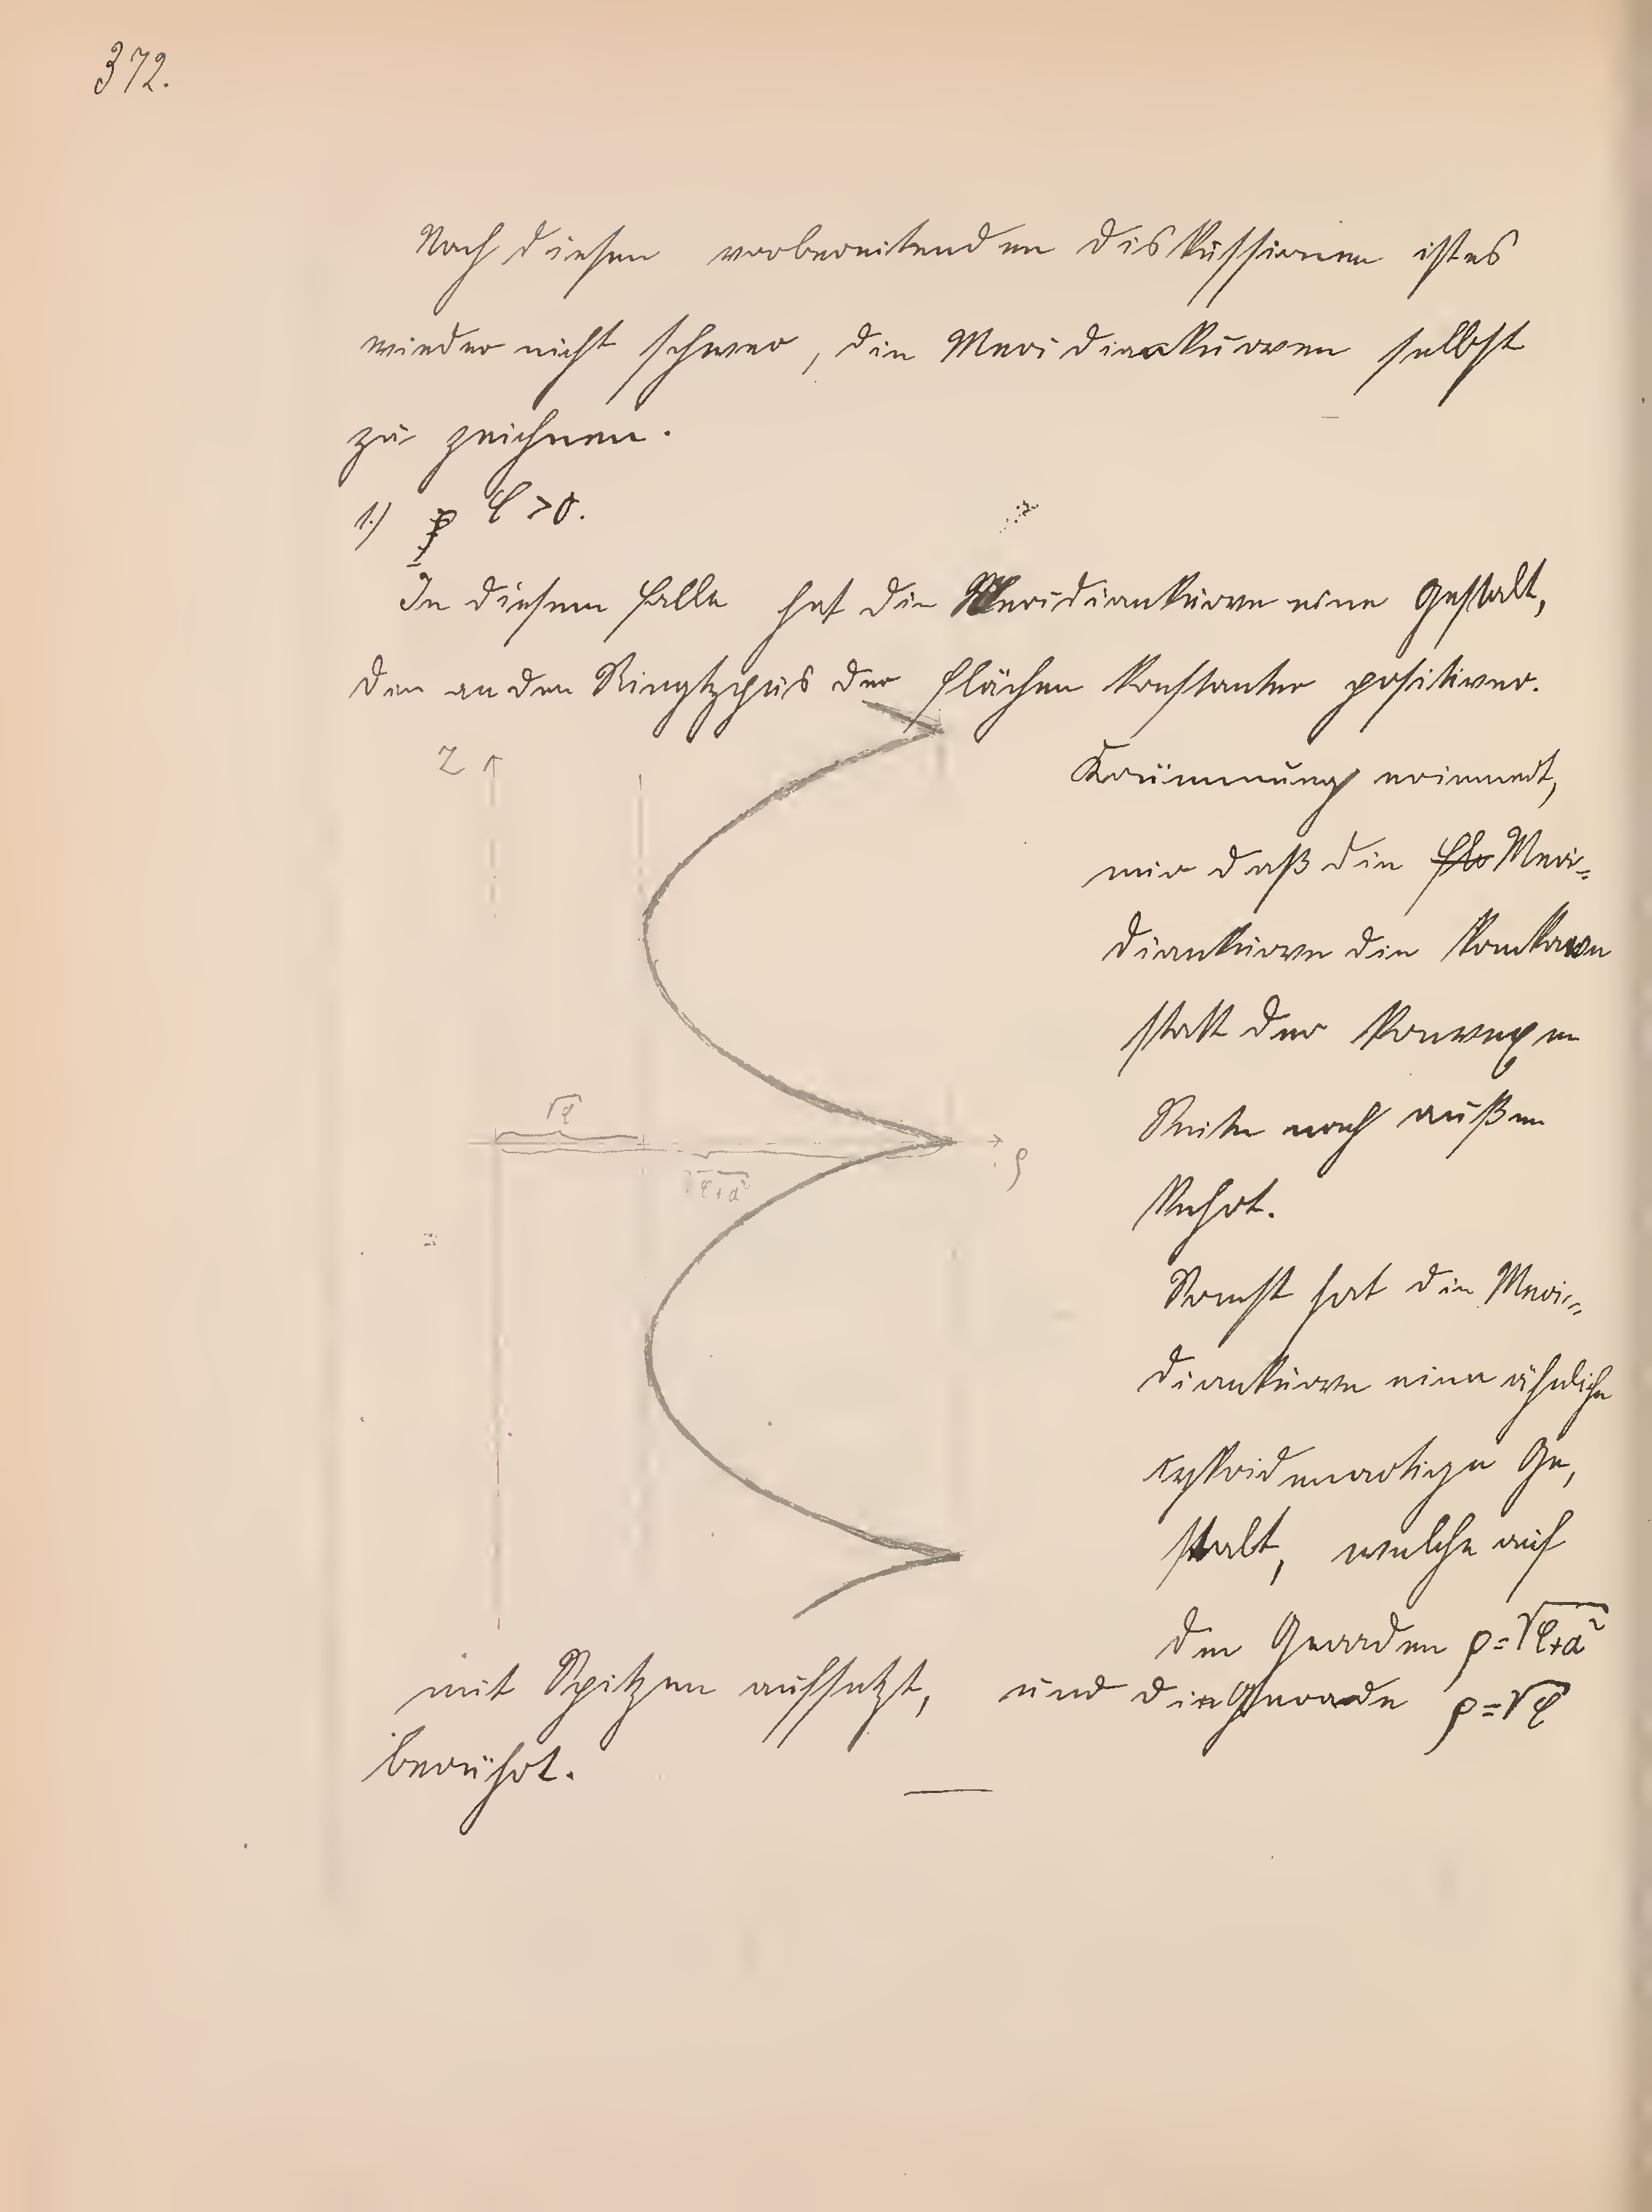 372.
Nach diesen vorbereitenden Diskussionen ist es
wieder nicht schwer, die Meridiankurven selbst
zu zeichnen.
1.) φ > 0.
In diesem Falle hat die Meridiankurve eine Gestalt,
die an den Ringtypus der Flächen konstanter positiver
Krümmung erinnert,
nur daß die Meri-
diankurve die konkave
statt der konvexen
Seite nach außen
kehrt.
Sonst hat die Meri-
diankurve eine ähnliche
cykloidenartige Ge,
stalt, welche auf
den Geraden ρ=√φ+a²
mit Spitzen aufsetzt, und die Gerade ρ=√φ
berührt.
Z
√φ
√φ+a²
ρ